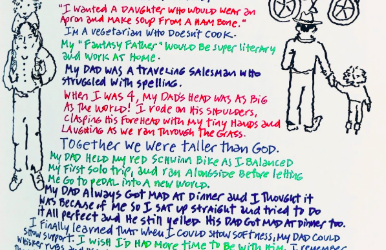 "I WANTED A DAUGHTER WHO WOULD WEAR AN
APRON AND MAKE SOUP FROM A HAM BONE."
I'M A VEGETARIAN WHO DOESN'T COOK.
MY "FANTASY FATHER" WOULD BE SUPER LITERARY
AND WORK AT HOME.
MY DAD WAS A TRAVELING SALESMAN WHO
STRUGGLED WITH SPELLING.
WHEN I WAS 4, MY DAD'S HEAD WAS AS BIG
AS THE WORLD! I RODE ON HIS SHOULDERS,
CLASPING HIS FOREHEAD WITH MY TINY HANDS AND
LAUGHING AS WE RAN THROUGH THE GRASS.
TOGETHER WE WERE TALLER THAN GOD.
MY DAD HELD MY RED SCHWINN BIKE AS I BALANCED
MY FIRST SOLO TRIP, AND RAN ALONGSIDE BEFORE LETTING
ME GO TO PEDAL INTO A NEW WORLD.
MY DAD ALWAYS GOT MAD AT DINNER AND I THOUGHT IT
WAS BECAUSE OF ME SO I SAT UP STRAIGHT AND TRIED TO DO
IT ALL PERFECT AND HE STILL YELLED. HIS DAD GOT MAD AT DINNER TOO.
I FINALLY LEARNED THAT WHEN I COULD SHOW SOFTNESS, MY DAD COULD
SHOW SUPPORT. I WISH I'D HAD MORE TIME TO BE WITH HIM. I REMEMBER
WHISKER RUBS AND